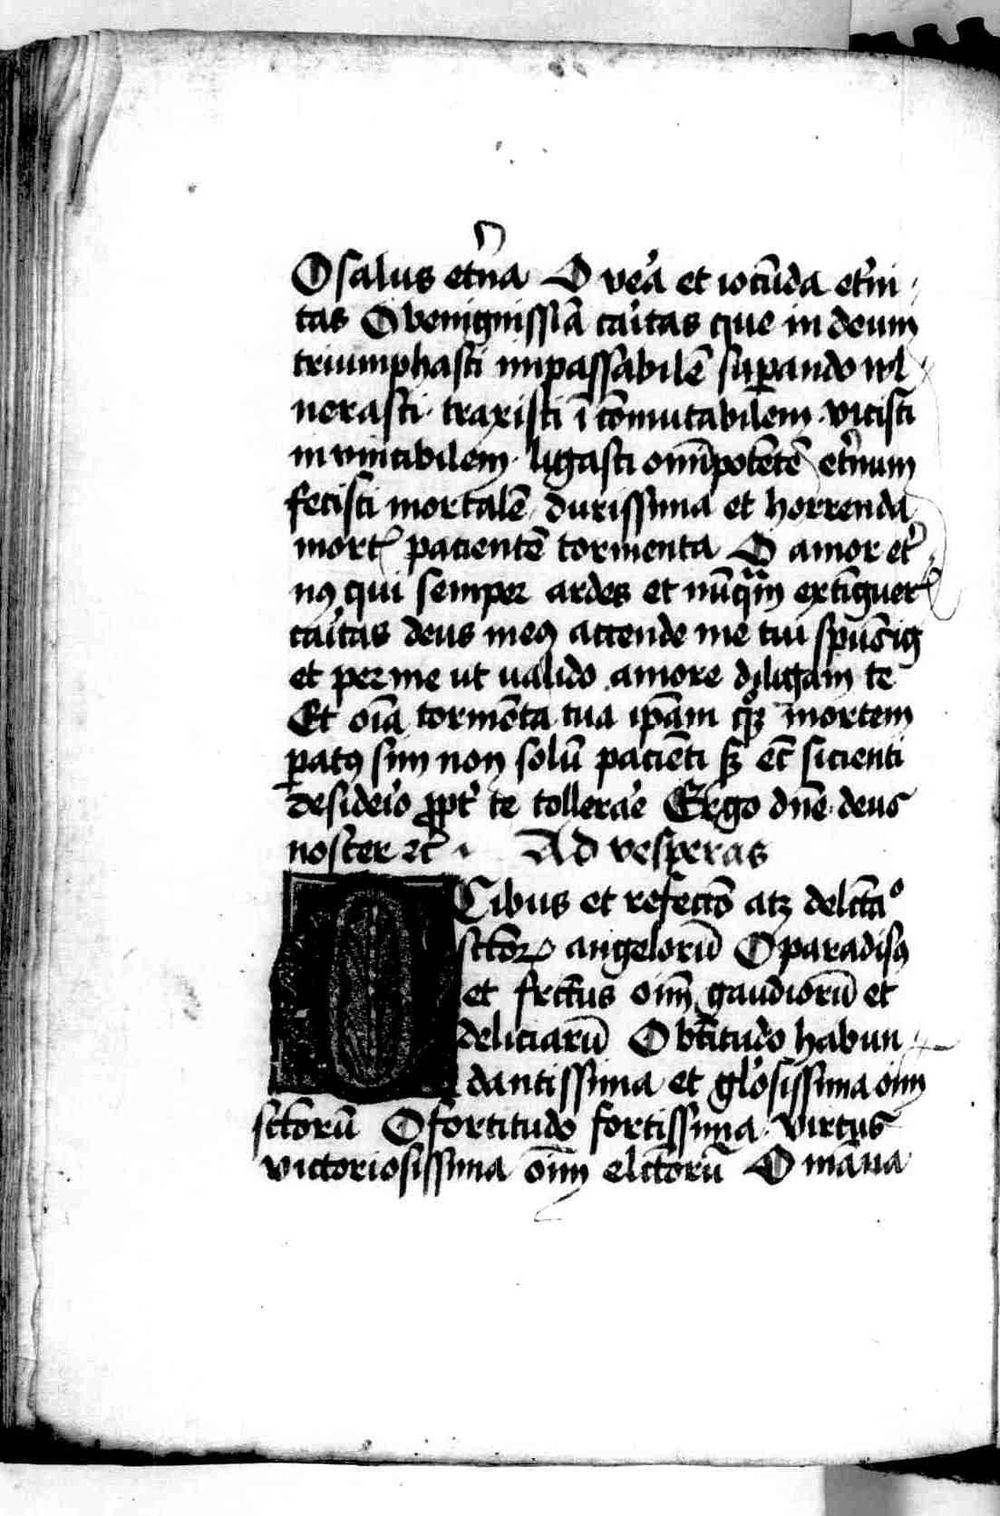 O salus et͛na O ve͛a et iocūda et͛ni
tas O benignissīa ca͛itas que in deum
triumphasti impassabilē suꝑando vul
nerasti · traxisti ī cōmutabilem · vicisti
in vincibilem · ligasti omīpotētē et͛num
fecisti mortalē / durissima et horrenda
mort᷒ pacientē tormenta O amor et͛
nꝯ qui semper ardes et nūqᷓm extīguer᷒
ca͛itas deus meꝯ accende me tui
et per me ut valido amore diligam te
Et oīa tormēta tua ip̄am qꝫ mortem
ꝑatꝯ sim non solū paciēti sꝫ et̄ sicienti
deside͛io ꝓpt͛ te tollera͛e Ergo dn̄e deus
noster ⁊c̄ · Ad vesperas
O Cibus et refectō atꝫ delctāᵒ
sctōꝝ angelorū O paradisꝯ
et frc̄tus oīm gaudiorū et
deliciarū O bt̄itudo habun
dantissima et glo͛sissima oīm
sctōrū O fortitudo fortissima · virtus
victoriosissima oīm elctōrū O māna